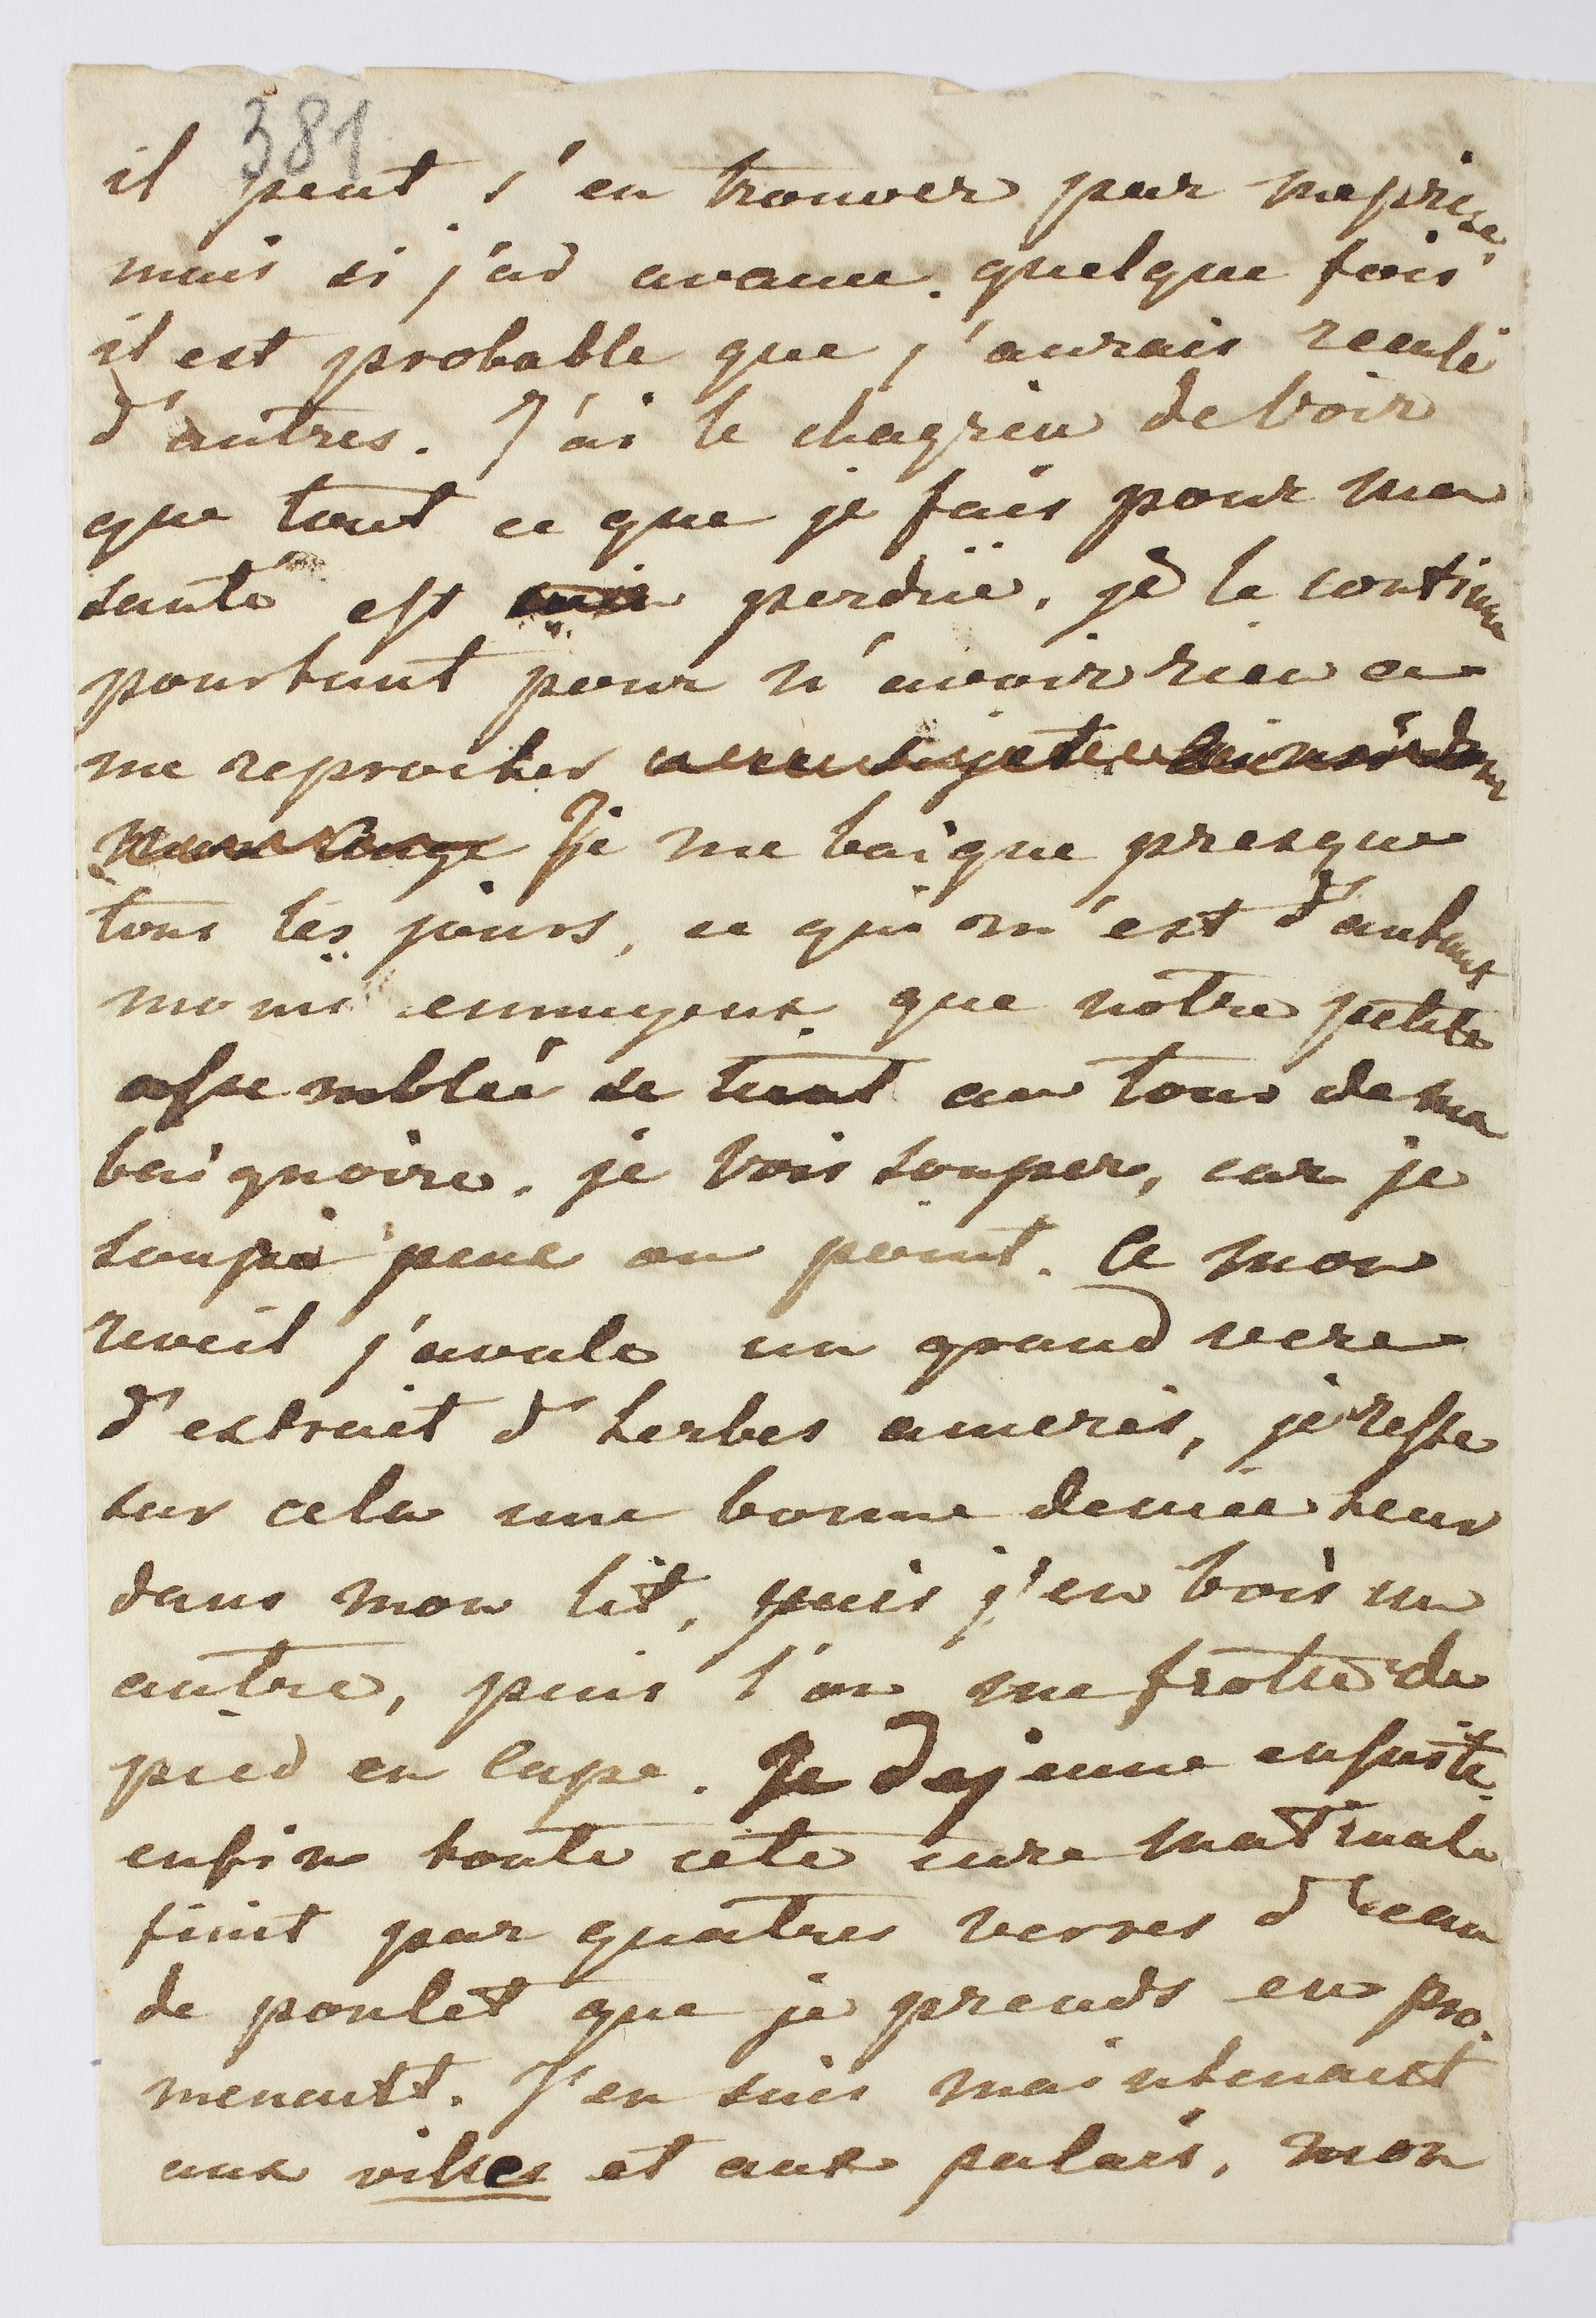 381
il peut s'en trouver par meprise
mais si j'ai avancé quelque fois
il est probable que j'aurais reculé
d'autres. J'ai le chagrin de voir
que tout ce que je fais pour ma
santé est perdüe. je le continue
pourtant pour n'avoir rien a
me reprocher
Je me baigne presque
tous les jours, ce qui m'est d'autant
moins ennuyeux que notre petite
assemblée se tient au tour de ma
baignoire. je vois souper, car je
soupe peu ou point. A mon
reveil j'avale un grand vere
d'extrait d'herbes ameres, je reste
sur cela une bonne demie heur
dans mon lit, puis j'en bois un
autre, puis l'on me frotte de
pied en cape. Je dejeune ensuite.
enfin toute cete cure matinale
finit par quatres verres d'eau
de poulet que je prends en pro-
menantt. J'en suis maintenant
aux villes et aux palais, mon